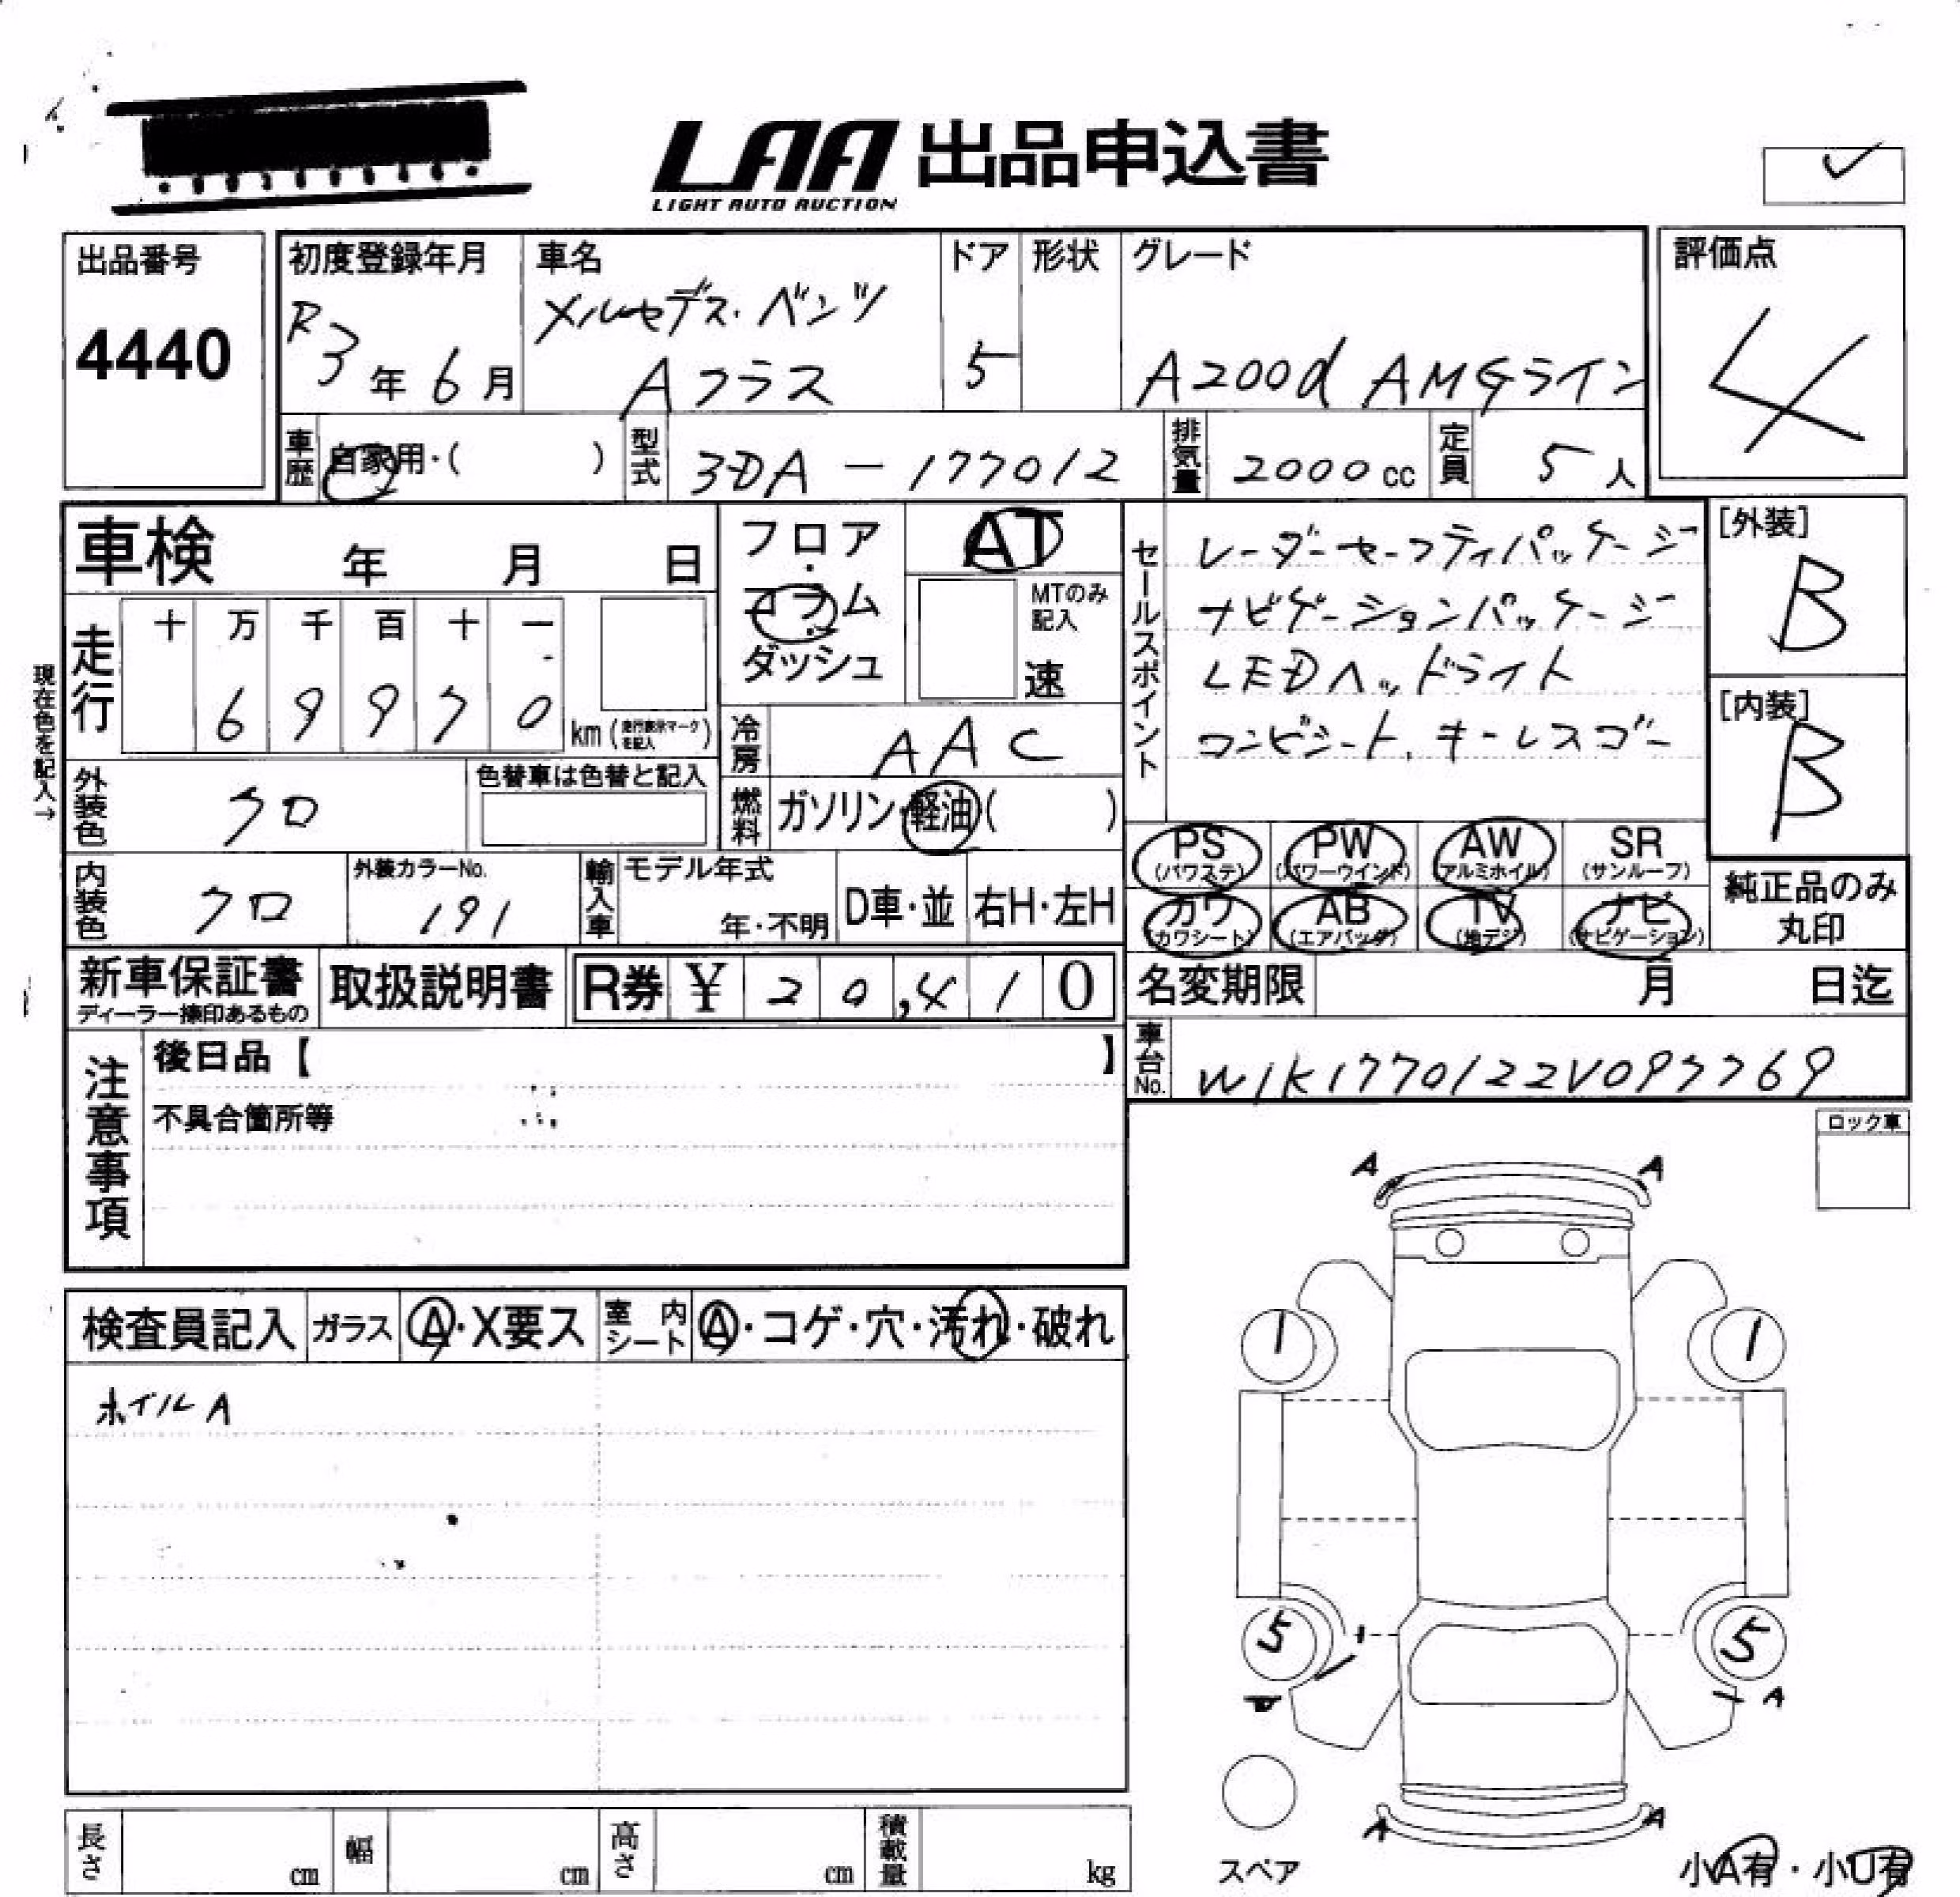 LAA 出品申込書
LIGHT AUTO AUCTION
出品番号
4440
初度登録年月
R3年6月
車名
メルセデス・ベンツ
Aクラス
ドア
5
形状
グレード
A200d AMGライン
評価点
4
車歴 自家用・( )
型式 3DA-177012
排気量 2000cc
定員 5人
車検 年 月 日
走行 十 万 千 百 十 一
69970
km (走行表示マークを記入)
現在色を記入→
フロア・コラム・ダッシュ
AT
MTのみ記入
速
冷房 AAC
燃料 ガソリン・軽油( )
セールスポイント
レーダーセーフティパッケージ
ナビゲーションパッケージ
LEDヘッドライト
コンビシート、キーレスゴー
[外装]
B
[内装]
B
外装色 クロ
色替車は色替と記入
内装色 クロ
外装カラーNo.
191
輸入車
モデル年式
年・不明
D車・並
右H・左H
PS (パワステ)
PW (パワーウインド)
AW (アルミホイル)
SR (サンルーフ)
カワ (カワシート)
AB (エアバッグ)
TV (地デジ)
ナビ (ナビゲーション)
純正品のみ
丸印
新車保証書
ディーラー捺印あるもの
取扱説明書
R券 ¥ 20,410
名変期限 月 日迄
車台No. W1K1770122V097769
注意事項
後日品【 】
不具合箇所等
ロック車
検査員記入
ガラス A・X要ス
室内シート A・コゲ・穴・汚れ・破れ
ホイルA
A A
1 1
5 5
A
A A
スペア
小A有・小U有
長さ cm
幅 cm
高さ cm
積載量 kg